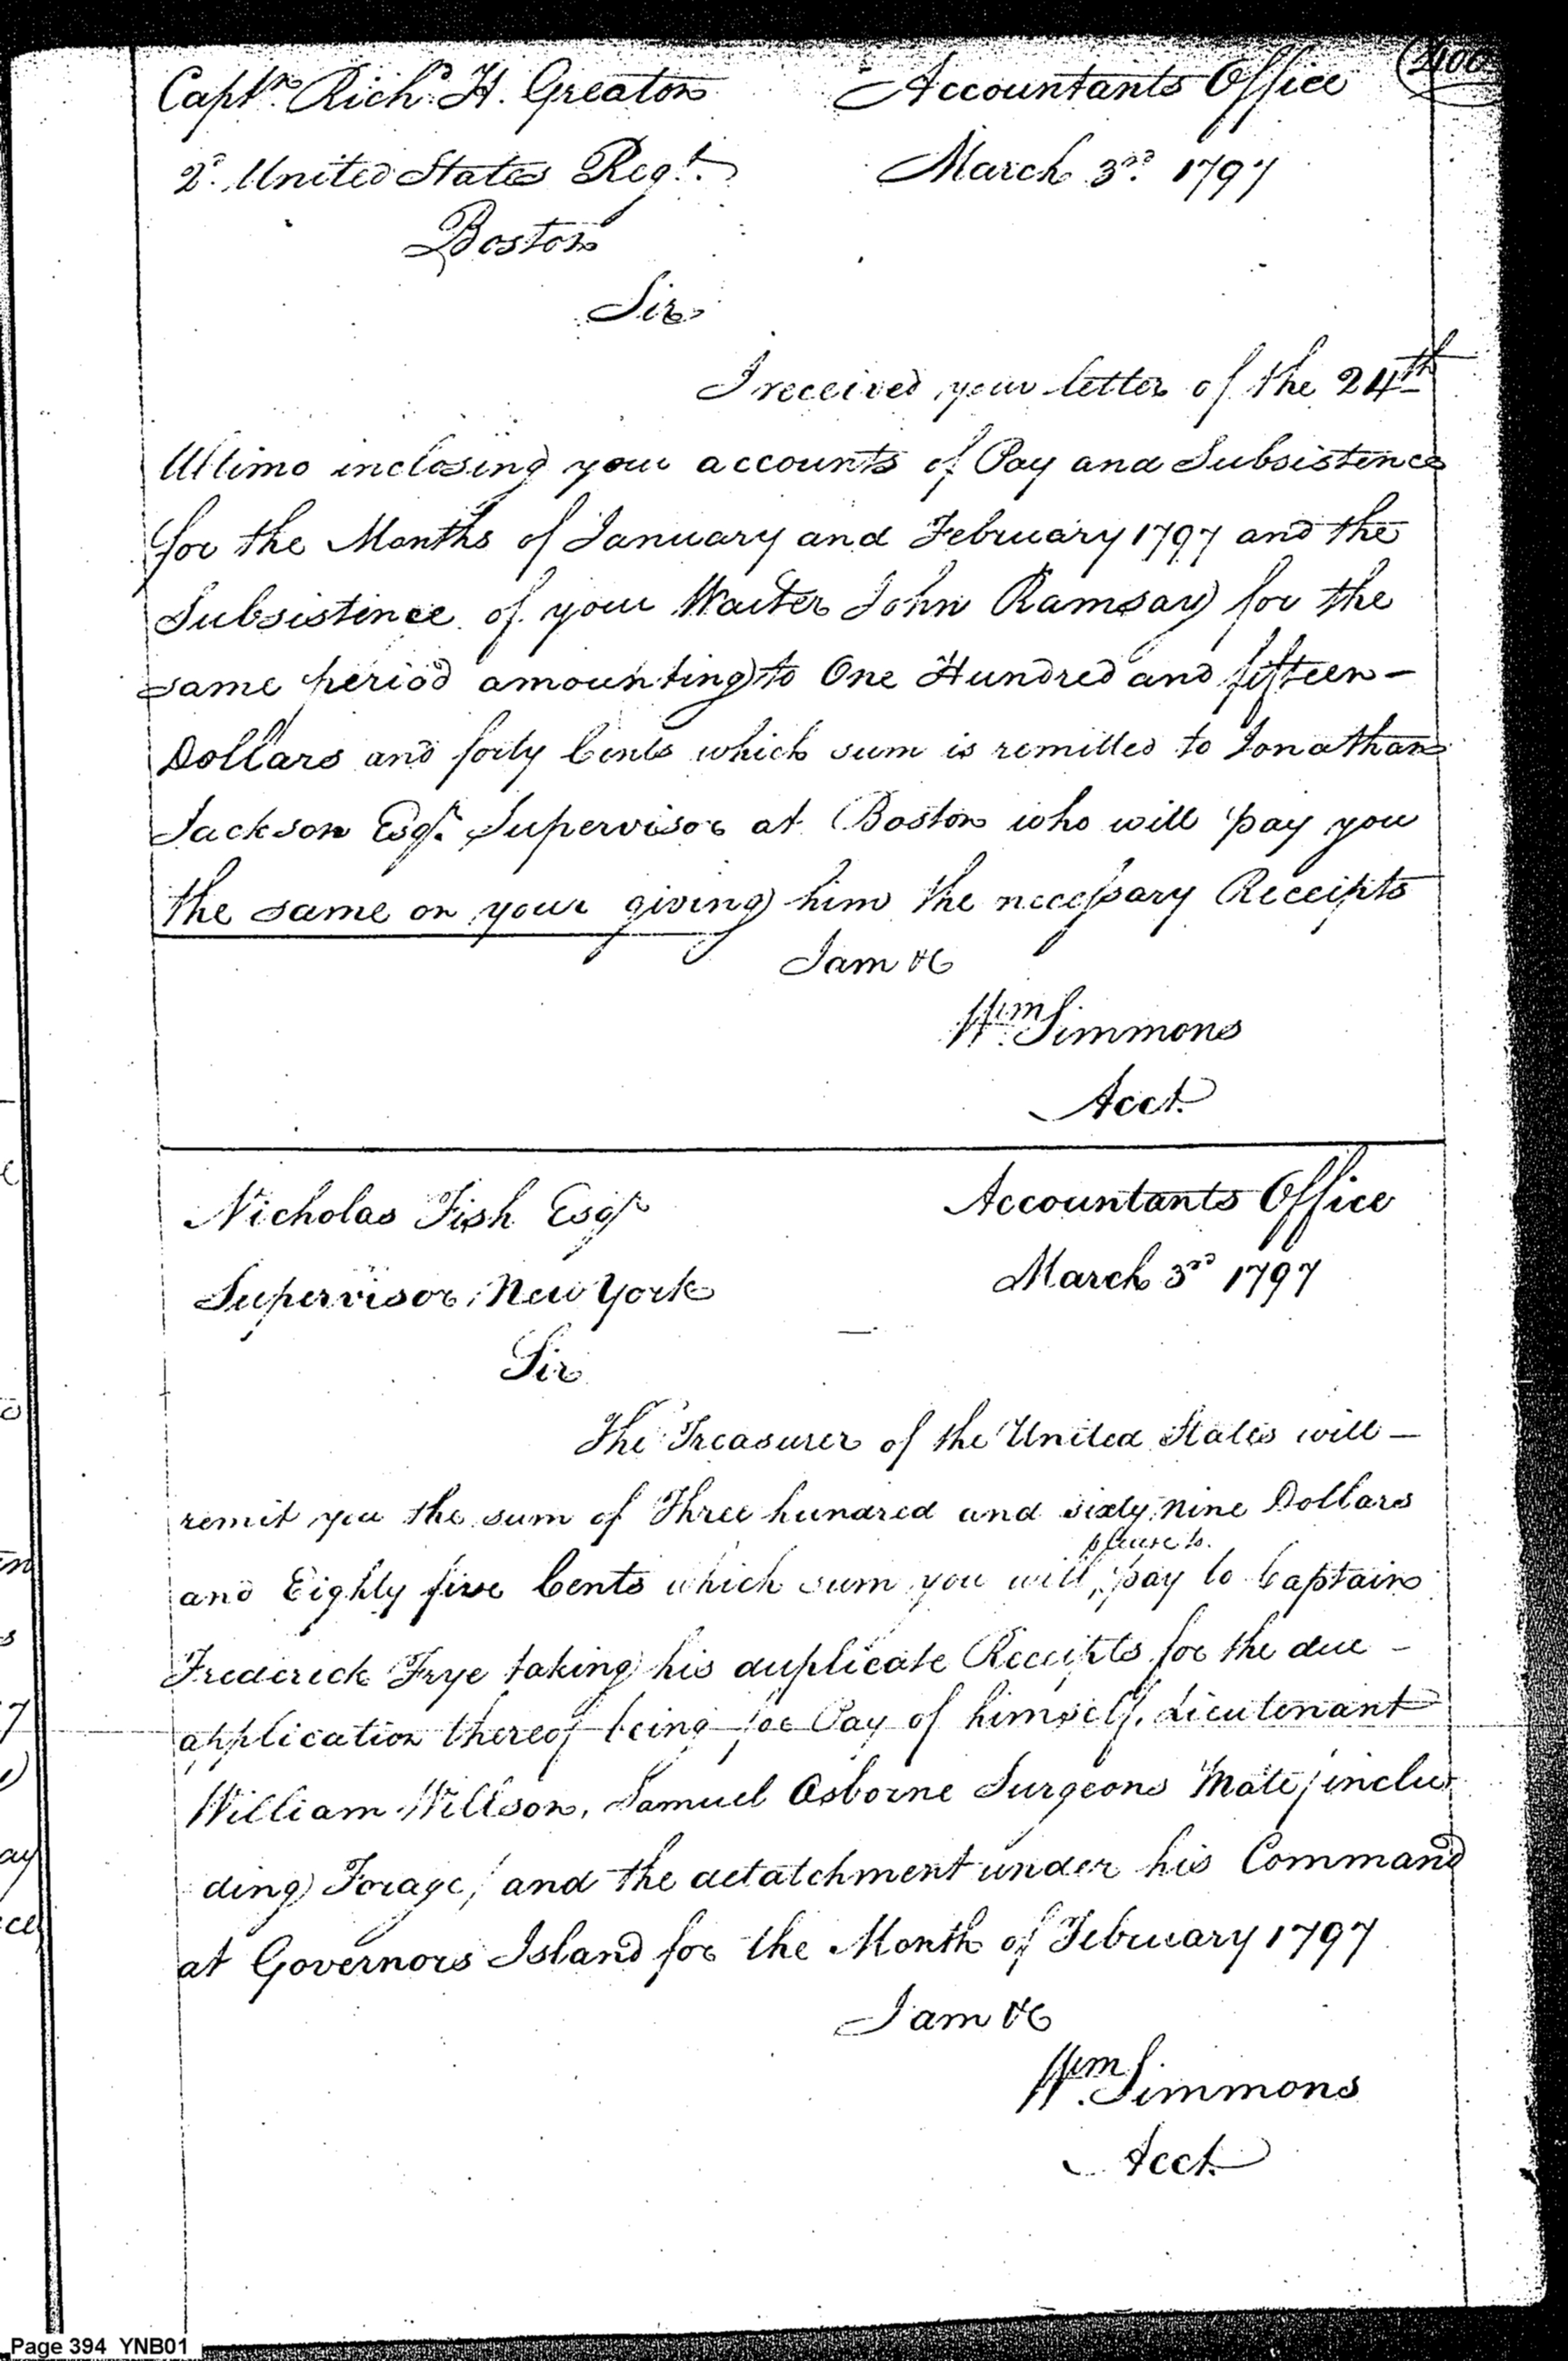 400
Captn. Richd. H. Greaton Accountants Office
2d. United States Regt. March 3rd. 1797
Boston
Sir
I received your letter of the 24th
Ultimo inclosing your accounts of Pay and Subsistence
for the Months of January and February 1797 and the
Subsistence of your Waiter John Ramsay for the
same period amounting to One Hundred and fifteen –
Dollars and forty Cents which sum is remitted to Jonathan
Jackson Esqr. Supervisor at Boston who will pay you
the same on your giving him the necessary Receipts
I am &c
Wm. Simmons
Acct.
Nicholas Fish Esqr Accountants Office
Supervisor, New York March 3rd 1797
Sir
The Treasurer of the United States will –
remit you the sum of Three hundred and sixty nine Dollars
please to
and Eighty five Cents which sum you will, pay to Captain
Frederick Frye taking his duplicate Receipts for the due –
application thereof being for Pay of himself, Lieutenant
William Willson, Samuel Osborne Surgeons Mate/inclu
ding Forage/ and the detatchment under his Command
at Governors Island for the Month of February 1797
I am &c
Wm. Simmons
Acct.
Page 394 YNB01